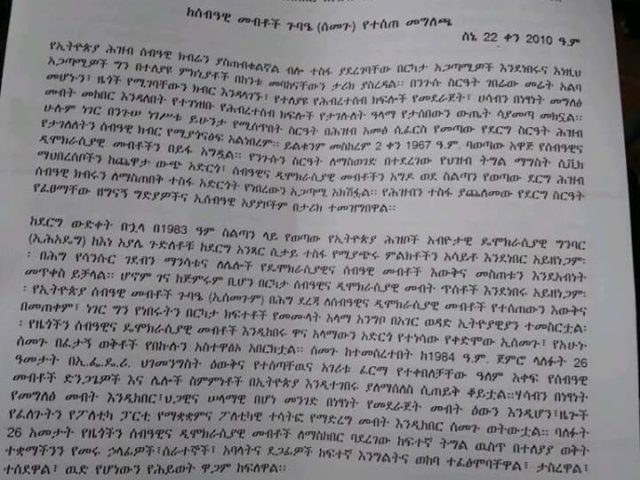 ከሰብዓዊ መብቶች ጉባዔ (ሰመጉ) የተሰጠ መግለጫ
ሰኔ 22 ቀን 2010 ዓ.ም
የኢትዮጵያ ሕዝብ ሰብዓዊ ክብሬን ያስጠብቁልኛል ብሎ ተስፋ ያደረገባቸው በርካታ አጋጣሚዎች እንደነበሩና እነዚህ
አጋጣሚዎች ግን በተለያዩ ምክኒያቶች በከንቱ መባከናቸውን ታሪክ ያስረዳል፡፡ በንጉሱ ስርዓት ገበሬው መሬት አልባ
መሆኑን፣ ዜጎች የሚገባቸውን ክብር እንዳላገኙ፣ የተለያዩ የሕብረተሰብ ክፍሎች የመደራጀት፣ ሀሳብን በነፃነት መግለፅ
መብት መከበር እንዳለበት የተገነዘቡ የሕብረተሰብ ክፍሎች የታገሉለት ዓላማ የታሰበውን ውጤት ሳያመጣ መክኗል፡፡
ሁሉም ነገር በንጉሡ ይሁንታ የሚሰጥበት ስርዓት በሕዝብ አመፅ ሲፈርስ የመጣው የደርግ ስርዓት ሕዝብ
የታገለለትን ሰብዓዊ ክብር የሚያጎናፅፍ አልነበረም፡፡ ይልቁንም መስከረም 2 ቀን 1967 ዓ.ም. ባወጣው አዋጅ የሰብዓዊና
ዲሞክራሲያዊ መብቶችን በይፋ አግዷል፡፡ የንጉሱን ስርዓት ለማስወገድ በተደረገው የህዝብ ትግል ማግስት ሲቪክ
ማህበረሰቦችን ከጨዋታ ውጭ አድርጎ፣ ሰብዓዊና ዲሞክራሲያዊ መብቶችን አግዶ ወደ ስልጣን የወጣው ደርግ ሕዝብ
ሰብዓዊ ክብሩን ለማስጠበቅ ተስፋ አድርጎት የነበረውን አጋጣሚ አክሽፏል፡፡ የሕዝብን ተስፋ ያጨለመው የደርግ ስርዓት
የፈፀማቸው ዘግናኝ ግድያዎችና ኢሰብዓዊ አያያዞችም በታሪክ ተመዝግበዋል፡፡
ከደርግ ውድቀት በኋላ በ1983 ዓም ስልጣን ላይ የወጣው የኢትዮጵያ ሕዝቦች አብዮታዊ ዴሞክራሲያዊ ግንባር
(ኢሕአዴግ) ከእነ አያሌ ጉድለቶቹ ከደርግ አንጻር ሲታይ ተስፋ የሚያጭሩ ምልክቶችን አሳይቶ እንደነበር አይዘነጋም
፡ በሕግ የሳንሱር ገደብን ማንሳቱና ለሌሎች የዴሞክራሲያዊና ሰብዓዊ መብቶች እውቅና መስጠቱን እንደአብነት
መጥቀስ ይቻላል፡፡ ሆኖም ገና ከጅምሩም ቢሆን በርካታ ሰብዓዊና ዲሞክራሲያዊ መብት ጥሰቶች እንደነበሩ አይዘነጋም፡
፡ የኢትዮጵያ ሰብዓዊ መብቶች ጉባዔ (ኢሰመጉም) በሕግ ደረጃ ለሰብዓዊና ዲሞክራሲያዊ መብቶች የተሰጠውን እውቅና
በመጠቀም፣ ነገር ግን የነበሩትን በርካታ ክፍተቶች የመሙላት አላማ አንግቦ በአገር ወዳድ ኢትዮጵያዊያን ተመስርቷል፡
፡ የዜጎችን ሰብዓዊና ዴሞክራሲያዊ መብቶች እንዲከበሩ ዋና አላማውን አድርጎ የተነሳው የቀድሞው ኢሰመጉ፣ የአሁኑ
ሰመጉ በፈታኝ ወቅቶች የበኩሉን አስተዋፅኦ አበርክቷል፡፡ ሰመጉ ከተመሰረተበት ከ1984 ዓ.ም. ጀምሮ ላለፉት 26
ዓመታት በኢ.ፌ.ዴ.ሪ. ህገመንግስት ዕውቅና የተሰጣቸዉና አገሪቱ ፈርማ የተቀበለቻቸው ዓለም አቀፍ የሰብዓዊ
መብቶች ድንጋጌዎች እና ሌሎች ስምምነቶች በኢትዮጵያ እንዲተገበሩ ያለማሰለስ ሲጠይቅ ቆይቷል፡፡ሃሳብን በነፃነት
የመግለፅ መብት እንዲከበር፣ህጋዊና ሠላማዊ በሆነ መንገድ በነፃነት የመደራጀት መብት ዕውን እንዲሆን፣ዜጎች
የፈለጉትን የፖለቲካ ፓርቲ የማቋቋምና ፖለቲካዊ ተሳትፎ የማድረግ መብት እንዲከበር ሰመጉ ወትውቷል፡፡ ባለፉት
26 አመታት የዜጎችን ሰብዓዊና ዲሞክራሲያዊ መብቶች ለማስከበር ባደረገው ከፍተኛ ትግል ዉስጥ በተለያየ ወቅት
ተቋማችንን የመሩ ኃላፊዎች፣ሰራተኞች፣ አባላትና ደጋፊዎች ከፍተኛ እንግልትና ወከባ ተፈፅሞባቸዋል፣ ታስረዋል፣
ተሰደዋል፣ ዉድ የሆነውን የሕይወት ዋጋም ከፍለዋል፡፡